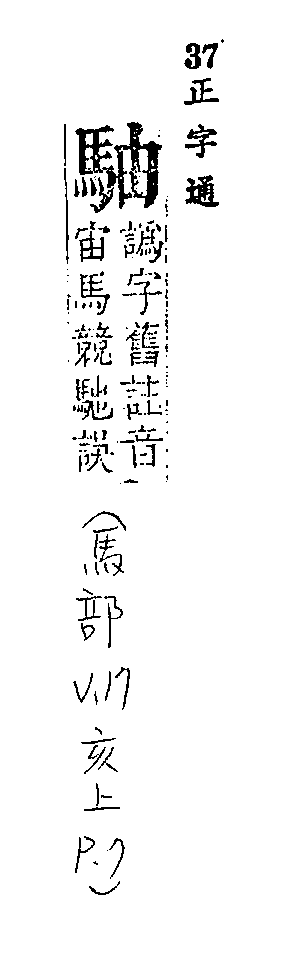 37
正字通
䮆
譌字舊註音
宙馬競馳誤
(馬部
V.17
亥上
P.7)